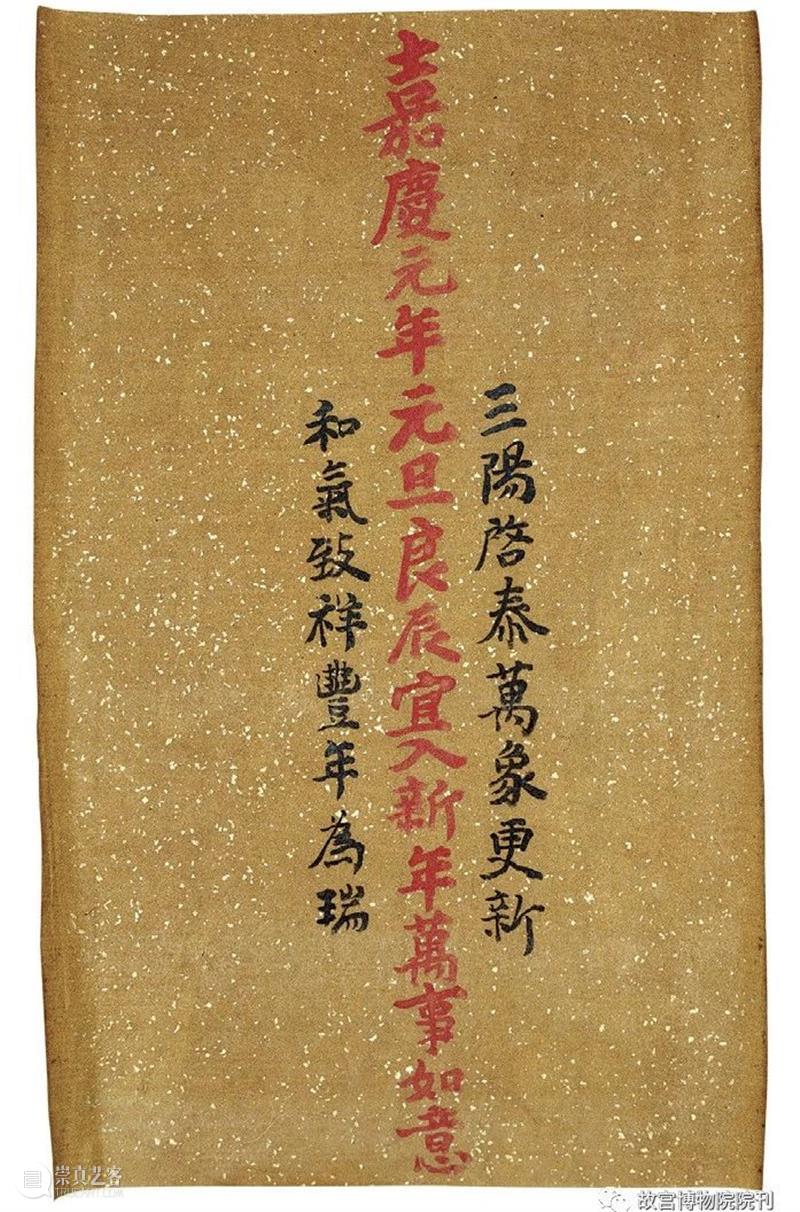 三陽啓泰萬象更新
嘉慶元年元旦良辰宜入新年萬事如意
和氣致祥豐年為瑞
崇真艺客
故宫博物院院刊